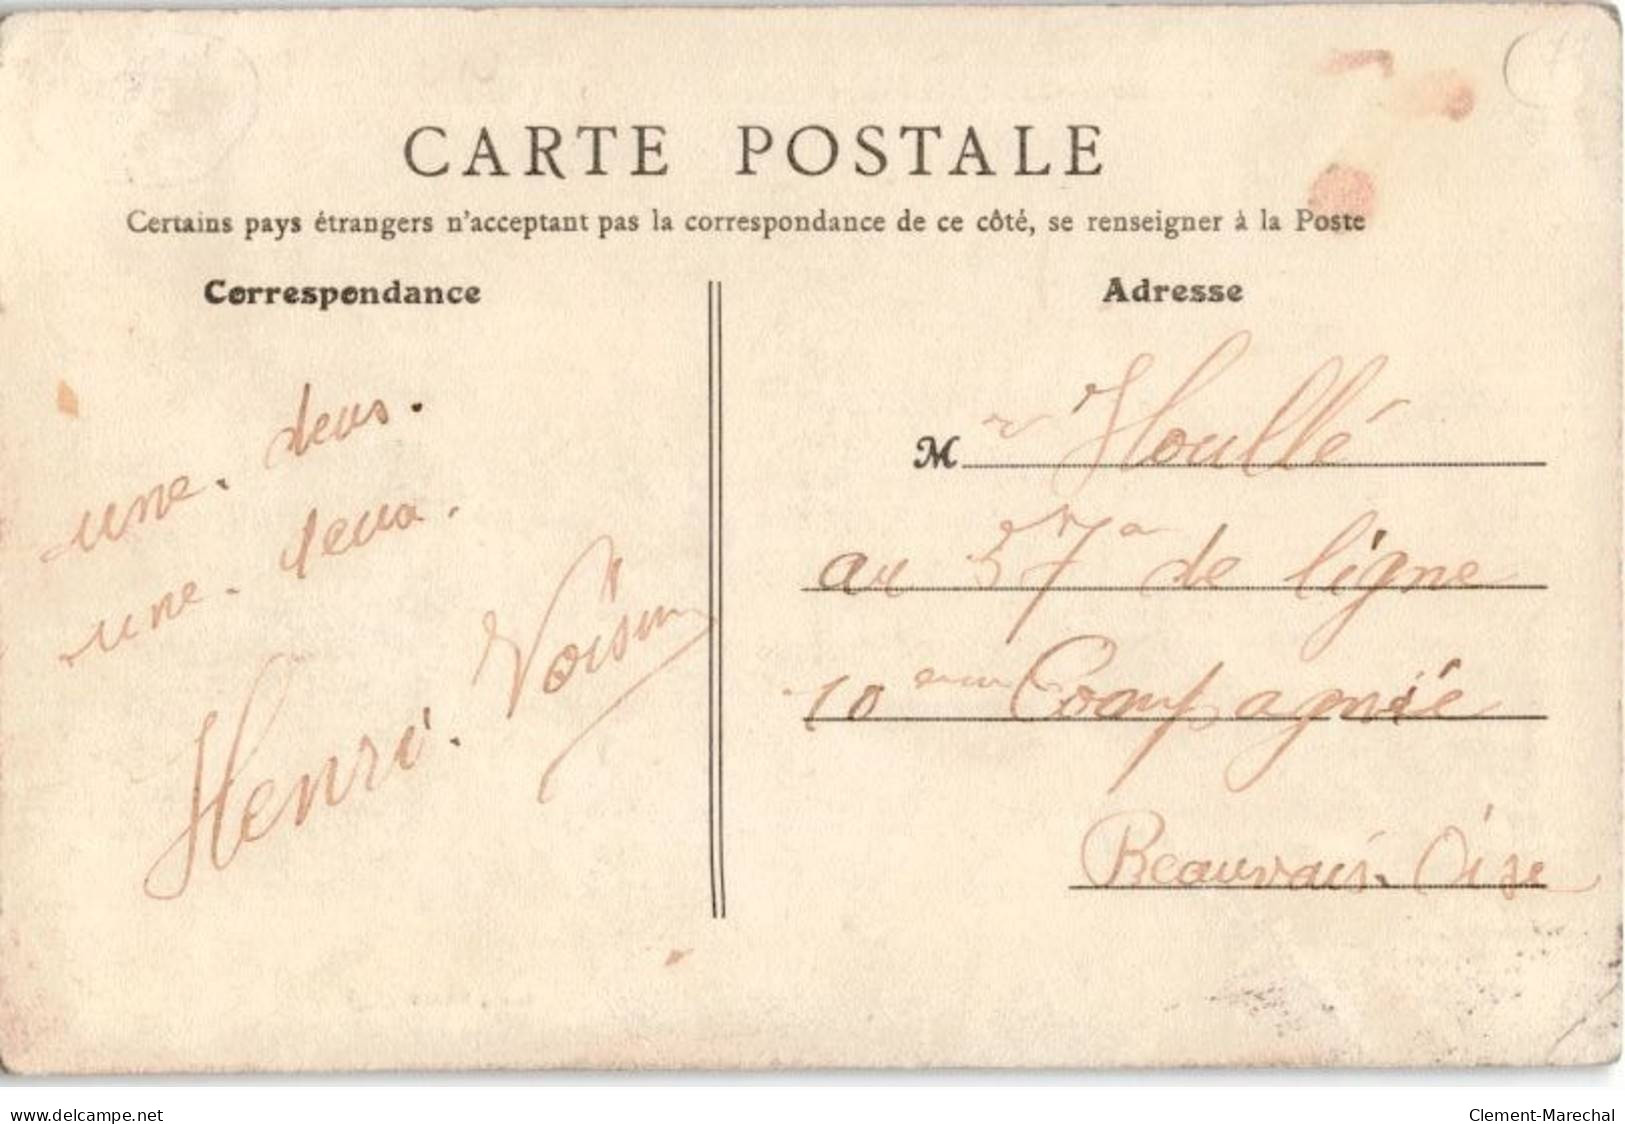 CARTE POSTALE
Certains pays étrangers n'acceptant pas la correspondance de ce côté, se renseigner à la Poste
Correspondance
une. deus.
une. deux.
Henri. Voisin
Adresse
Mr Houllé
au 57e de ligne
10eme Compagnie
Beauvais. Oise
www.delcampe.net
Clement-Marechal